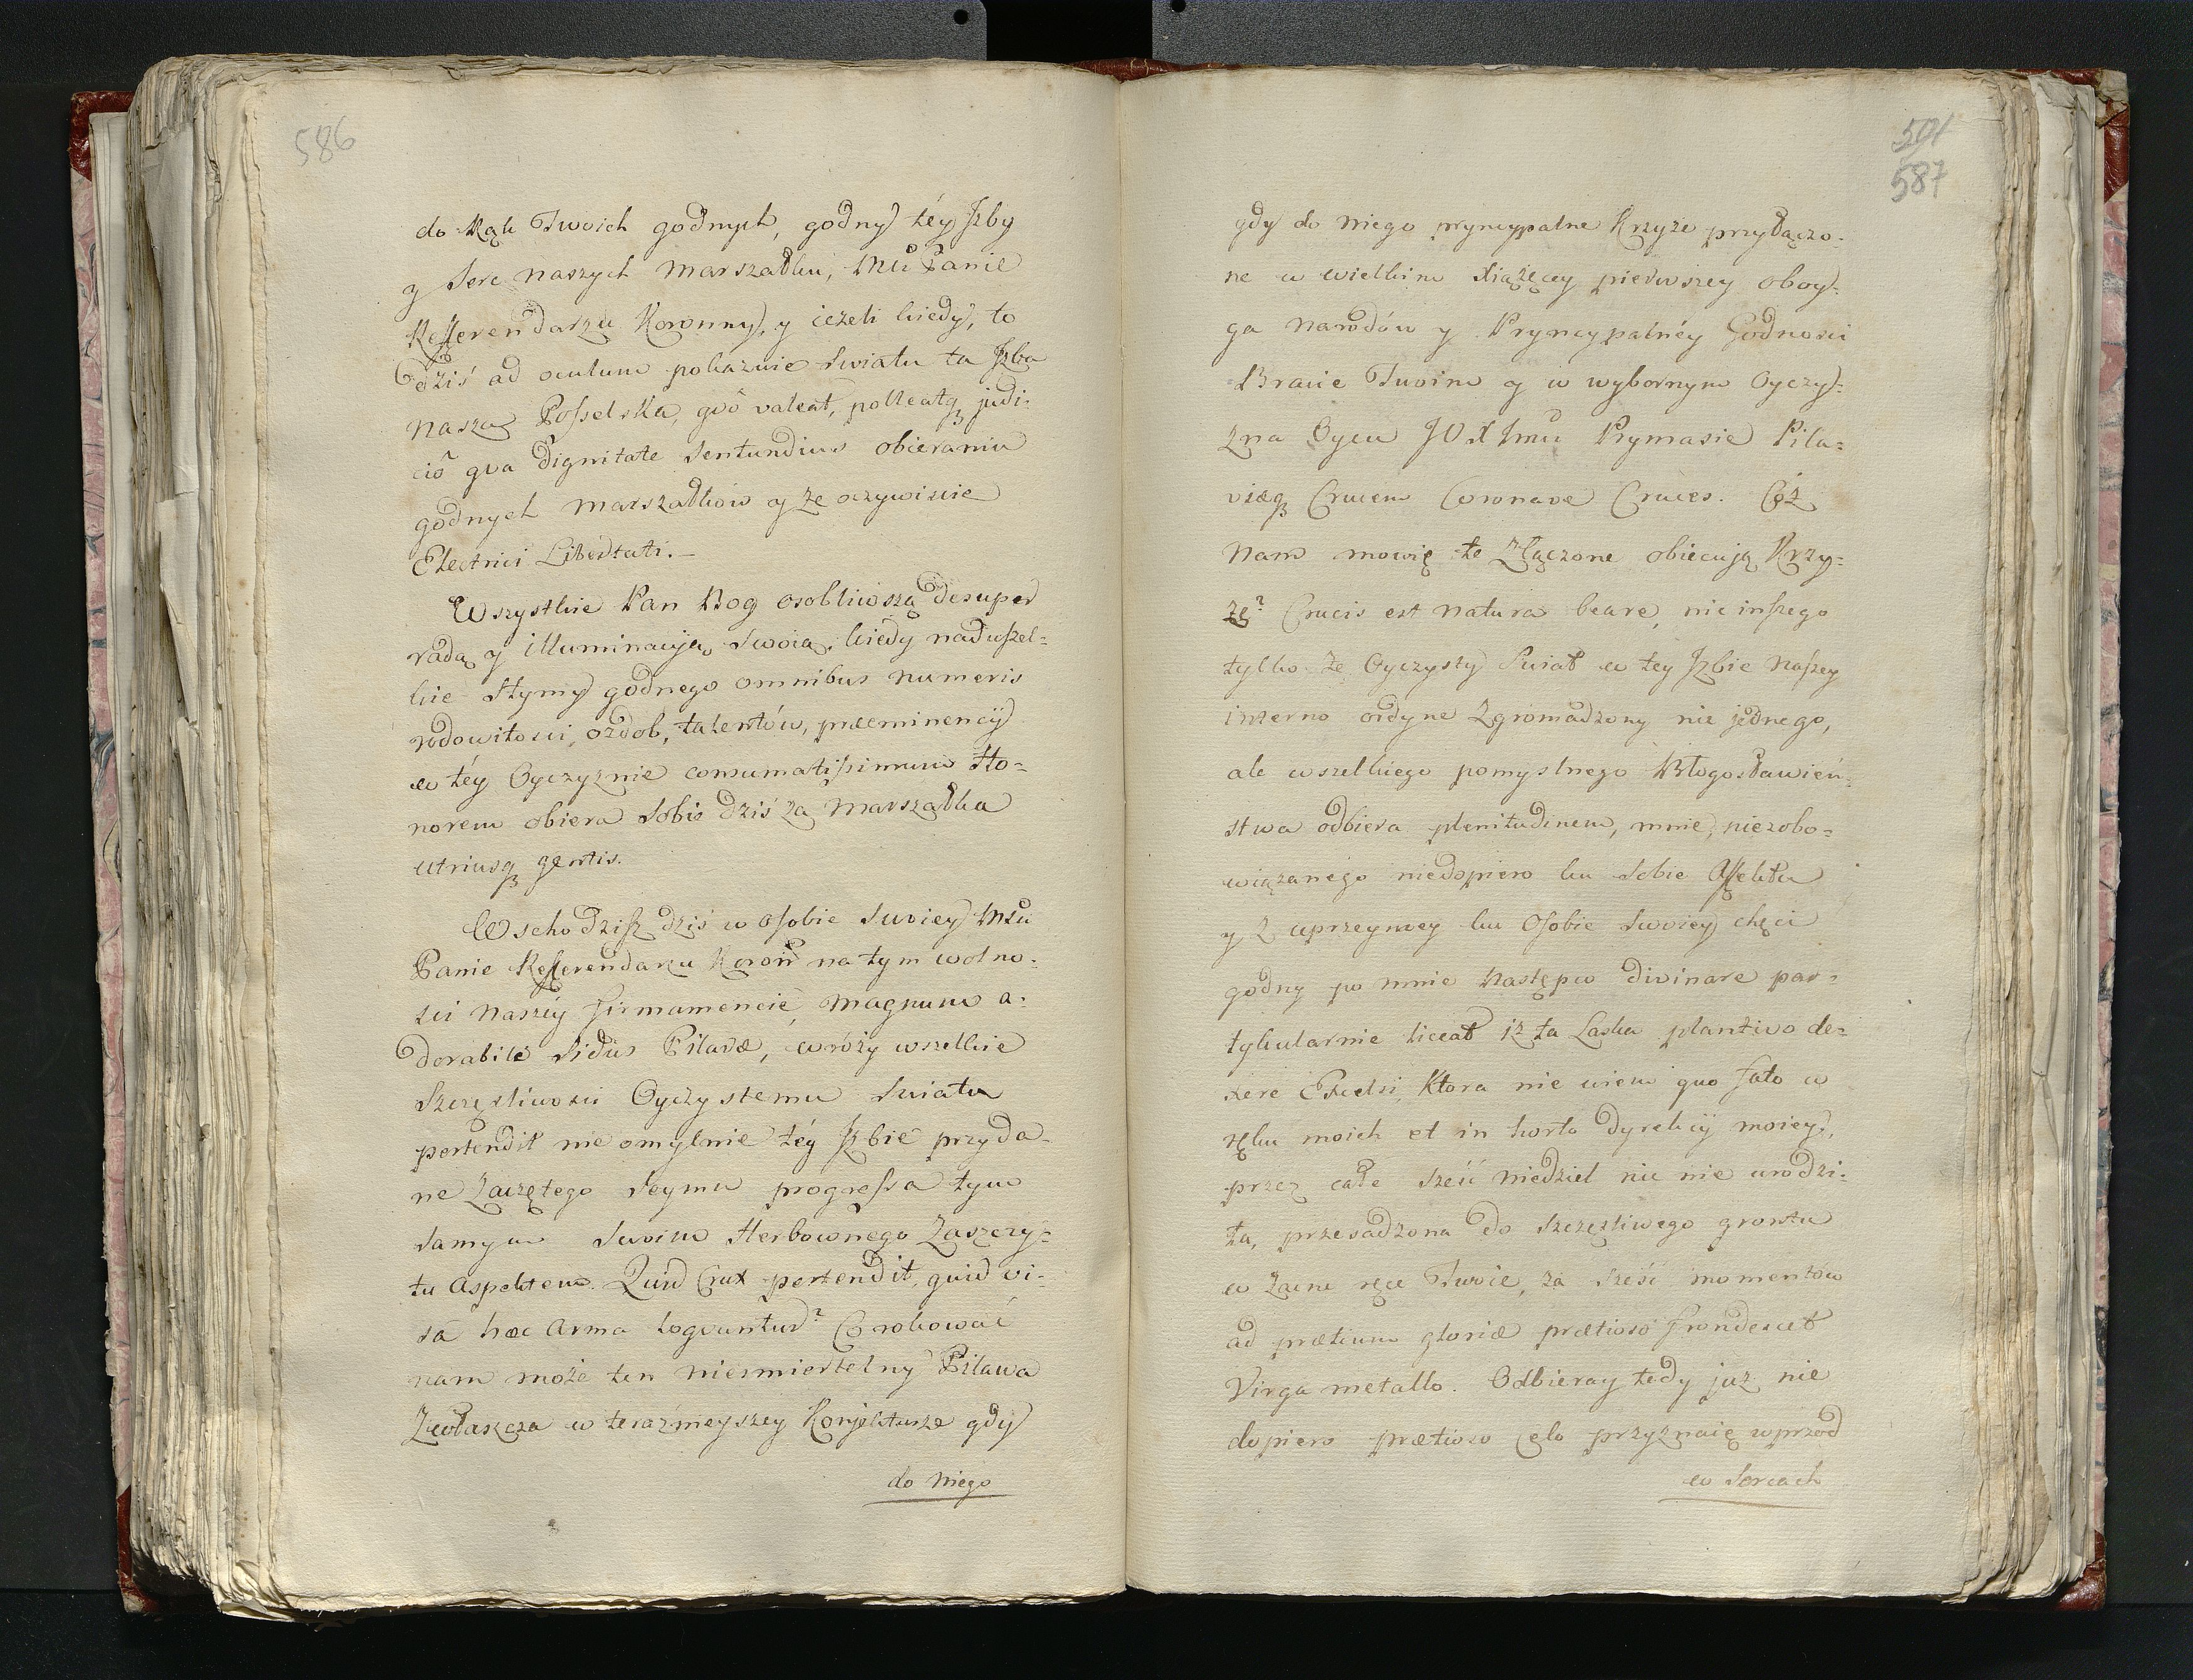 586
do Rąk Twoich godnych, godny téy Jzby
y Serc naszych Marszałku, Mći Panie
Refferendarzu Koronny, y ieżeli kiedy, to
dziś ad oculum pokazuie Swiatu ta Jzba
nasza Posselska, qvō valeat, polleatq judi-
ciō qva dignitate Sentundium obieraniu
godnych Marszałków y że oczywiscie
Electrici Libertati. —
Wszystkie Pan Bog osobliwszą desuper
radą y illuminacyą swoią, kiedy nad wszel-
kie Stymy godnego omnibus numeris
rodowitosci, ozdob, talentów, præeminencÿ
w téy Oyczyznie consumatissimum Ho-
norem obiera Sobie dziś za Marszałka
utriusq gentis.
Wschodzisz dziś w osobie Swoiey Mći
Panie Refferendarzu Koroñ na tym wolno-
sci naszéy firmamencie, Magnum a-
dorabile Sidus Pilavæ, wróży wszelkie
Szczęsliwosci Oyczystemu Swiatu
portendit nieomylnie téy Jzbie przyda-
ne Zaczętego Seymu progressa tym
samym Swoim Herbownego Zaszczy-
tu Aspektem. Quid Crux portendit, quid vi-
sa hæc Arma loqvuntur? Corokować
nam może ten niesmiertelny Pilawa
Zwłaszcza w teraźnieyszey Konjekturze gdy
do niego
501
587
gdy do niego pryncypalne Krzyże przyłączo-
ne w wielkim Xiążęcey pierwszey oboy-
ga narodów y Pryncypalnéy Godnosci
Bracie Twoim y w wybornym Oyczy-
zna Oycu JO X Jmći Prymasie Pila-
viæq Crucem Coronavē Cruces. Cóż
nam mowię te Złączone obiecuią Krzy-
żę? Crucis est natura beare, nic inszego
tylko że Oyczysty Swiat w tey Jzbie naszey
interno ordyne Zgromadzony nie jednego,
ale wszelkiego pomyslnego Błogosławień-
stwa odbiera plenitudinem, mnie, niezobo-
wiązanego niedopiero ku Sobie Affektu
y z uprzeymey ku Osobie Swoiey chęci
godny po mnie Następco divinare par-
tykularnie liceat iż ta Laska plantivo de-
xere Excelsi, Ktora nie wiem quo fato w
ręku moich et in horto dyrekcÿ moiey,
przez całe Sześć niedziel nic nie urodzi-
ła, przesadzona do szczęsliwego grontu
w Zacne ręce Twoie, za Sześć momentów
ad prætium gloriæ prætioso frondescet
Virga metallo. Odbieray tedy już nie
dopiero prætioso celo przyznaię wprzod
w Sercach